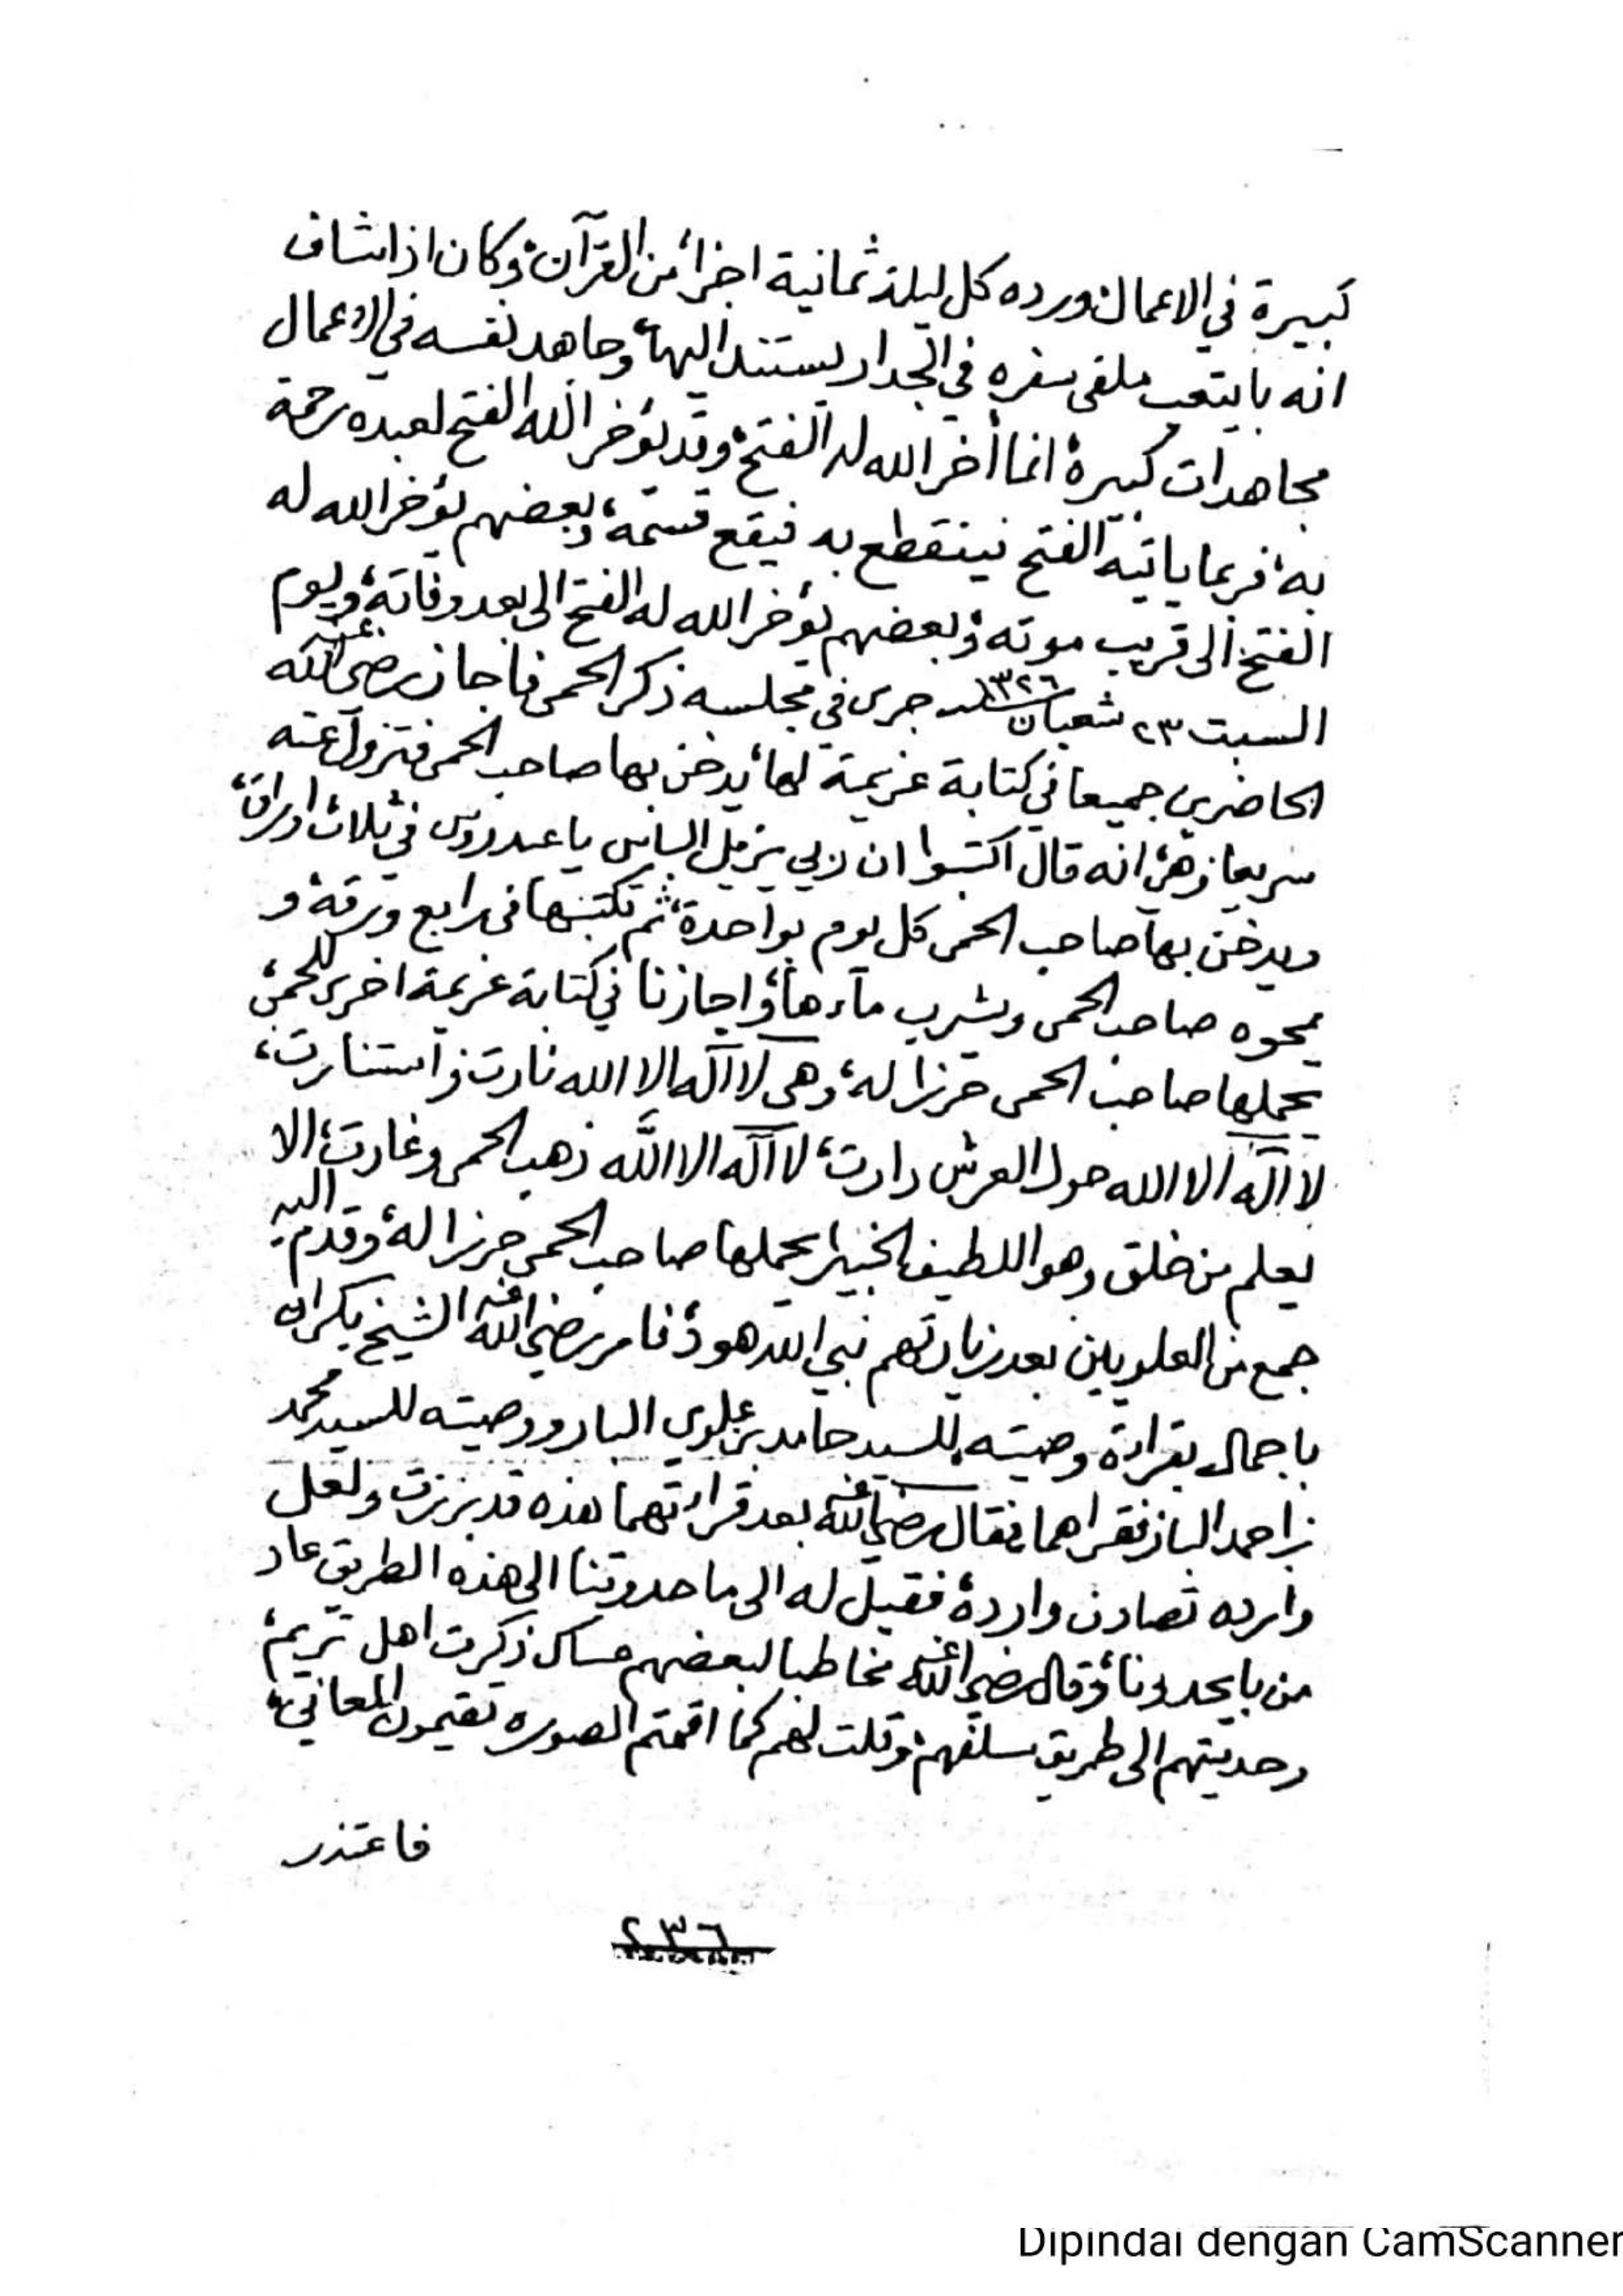 كبيرة في الاعمال، ورده كل ليلة ثمانية اجزاء من القرآن، وكان اذا شاف
انه بايتعب ملقى سفره في الجدار يستند اليها، وجاهد نفسه في الاعمال
مجاهدات كبيرة، انما أخر الله له الفتح، وقد يؤخر الله الفتح لعبده رحمة
به، فربما ياتيه الفتح فينقطع به فيقع قسمه، وبعضهم يؤخر الله له
الفتح الى قريب موته، وبعضهم يؤخر الله له الفتح الى بعد وفاته، ويوم
السبت ٢٣ شعبان سنة ١٣٢٦ جرى في مجلسه ذكر الحمى فاجاز رضي الله عنه
الحاضرين جميعا في كتابة عزيمة لها، يدخن بها صاحب الحمى فتزول عنه
سريعا، وهي، انه قال اكتبوا ان ربي يزيل الباس يا عيدروس في ثلاث اوراق،
ويدخن بها صاحب الحمى كل يوم بواحدة، ثم تكتبها في رابع ورقة، و
يمحوه صاحب الحمى ويشرب ماءها، واجازنا في كتابة عزيمة اخرى للحمى،
يحملها صاحب الحمى حرزا له، وهي لا اله الا الله نارت واستنارت،
لا اله الا الله حول العرش دارت، لا اله الا الله ذهب الحمى وغارت، الا
يعلم من خلق وهو اللطيف الخبير، يحملها صاحب الحمى حرزا له، وقدم اليه
جمع من العلويين بعد زيارتهم نبي الله هود، فامر رضي الله عنه الشيخ بكران
باجمال بقراءة وصيته للسيد حامد بن علوي البار ووصيته للسيد محمد
بن احمد البار، فقراهما، فقال رضي الله عنه بعد قراءتهما هذه قد برزت ولعل
وارده تصادف واردة، فقيل له الى ما حدوتنا الى هذه الطريق عاد
من بايحدونا، وقال رضي الله عنه مخاطبا لبعضهم مساك ذكرت اهل تريم،
وحديتهم الى طريق سلفهم، وقلت لهم كما اقمتم الصوره تقيمون المعاني،
فاعتذر
٢٣٦
Dipindai dengan CamScanner